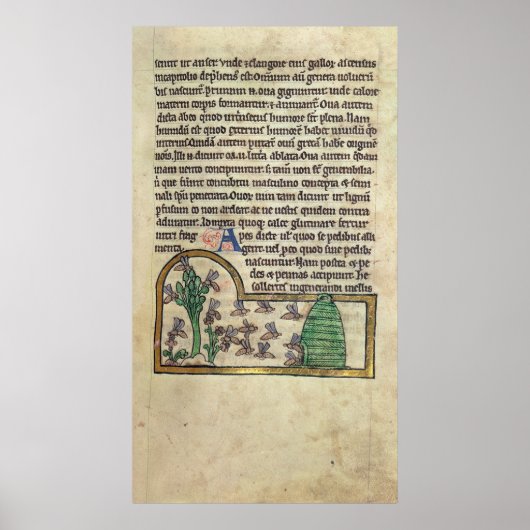 sentit ut anser. vnde & clangore eius gallor ascensus
in capitolio dephensus est. Omium aũ genera volucrũ
bis nascunt. primum n oua gignuntur. inde calore
materni corpis formantur & animant. Oua autem
dicta ab eo quod sint humore plena. Nam
humidũ est quod exterius humorẽ habet. uiuidũ qd
interius. Quidã autem putant oui grecã habere originẽ
nois. illi n dicunt oa. u. littera ablata. Oua autem qdam
inani vento concipiuntur. s; tam non sũt generabilia.
ñ que fuint concubitu masculino concepta & semi
nali spũ penetrata. Ouor uim tam dicunt ut lignũ
pfusum eo non ardeat ac ne uestis quidem contra
aduratur. Admixta quoq; calce glutinare fertur
uitri frag
menta.
Apes dicte ul' quod se pedibus alli
gent. uel p eo quod sine pedib;
nascuntur. Nam postea & pe
des & pennas accipiunt. he
sollertes in generandi mellis